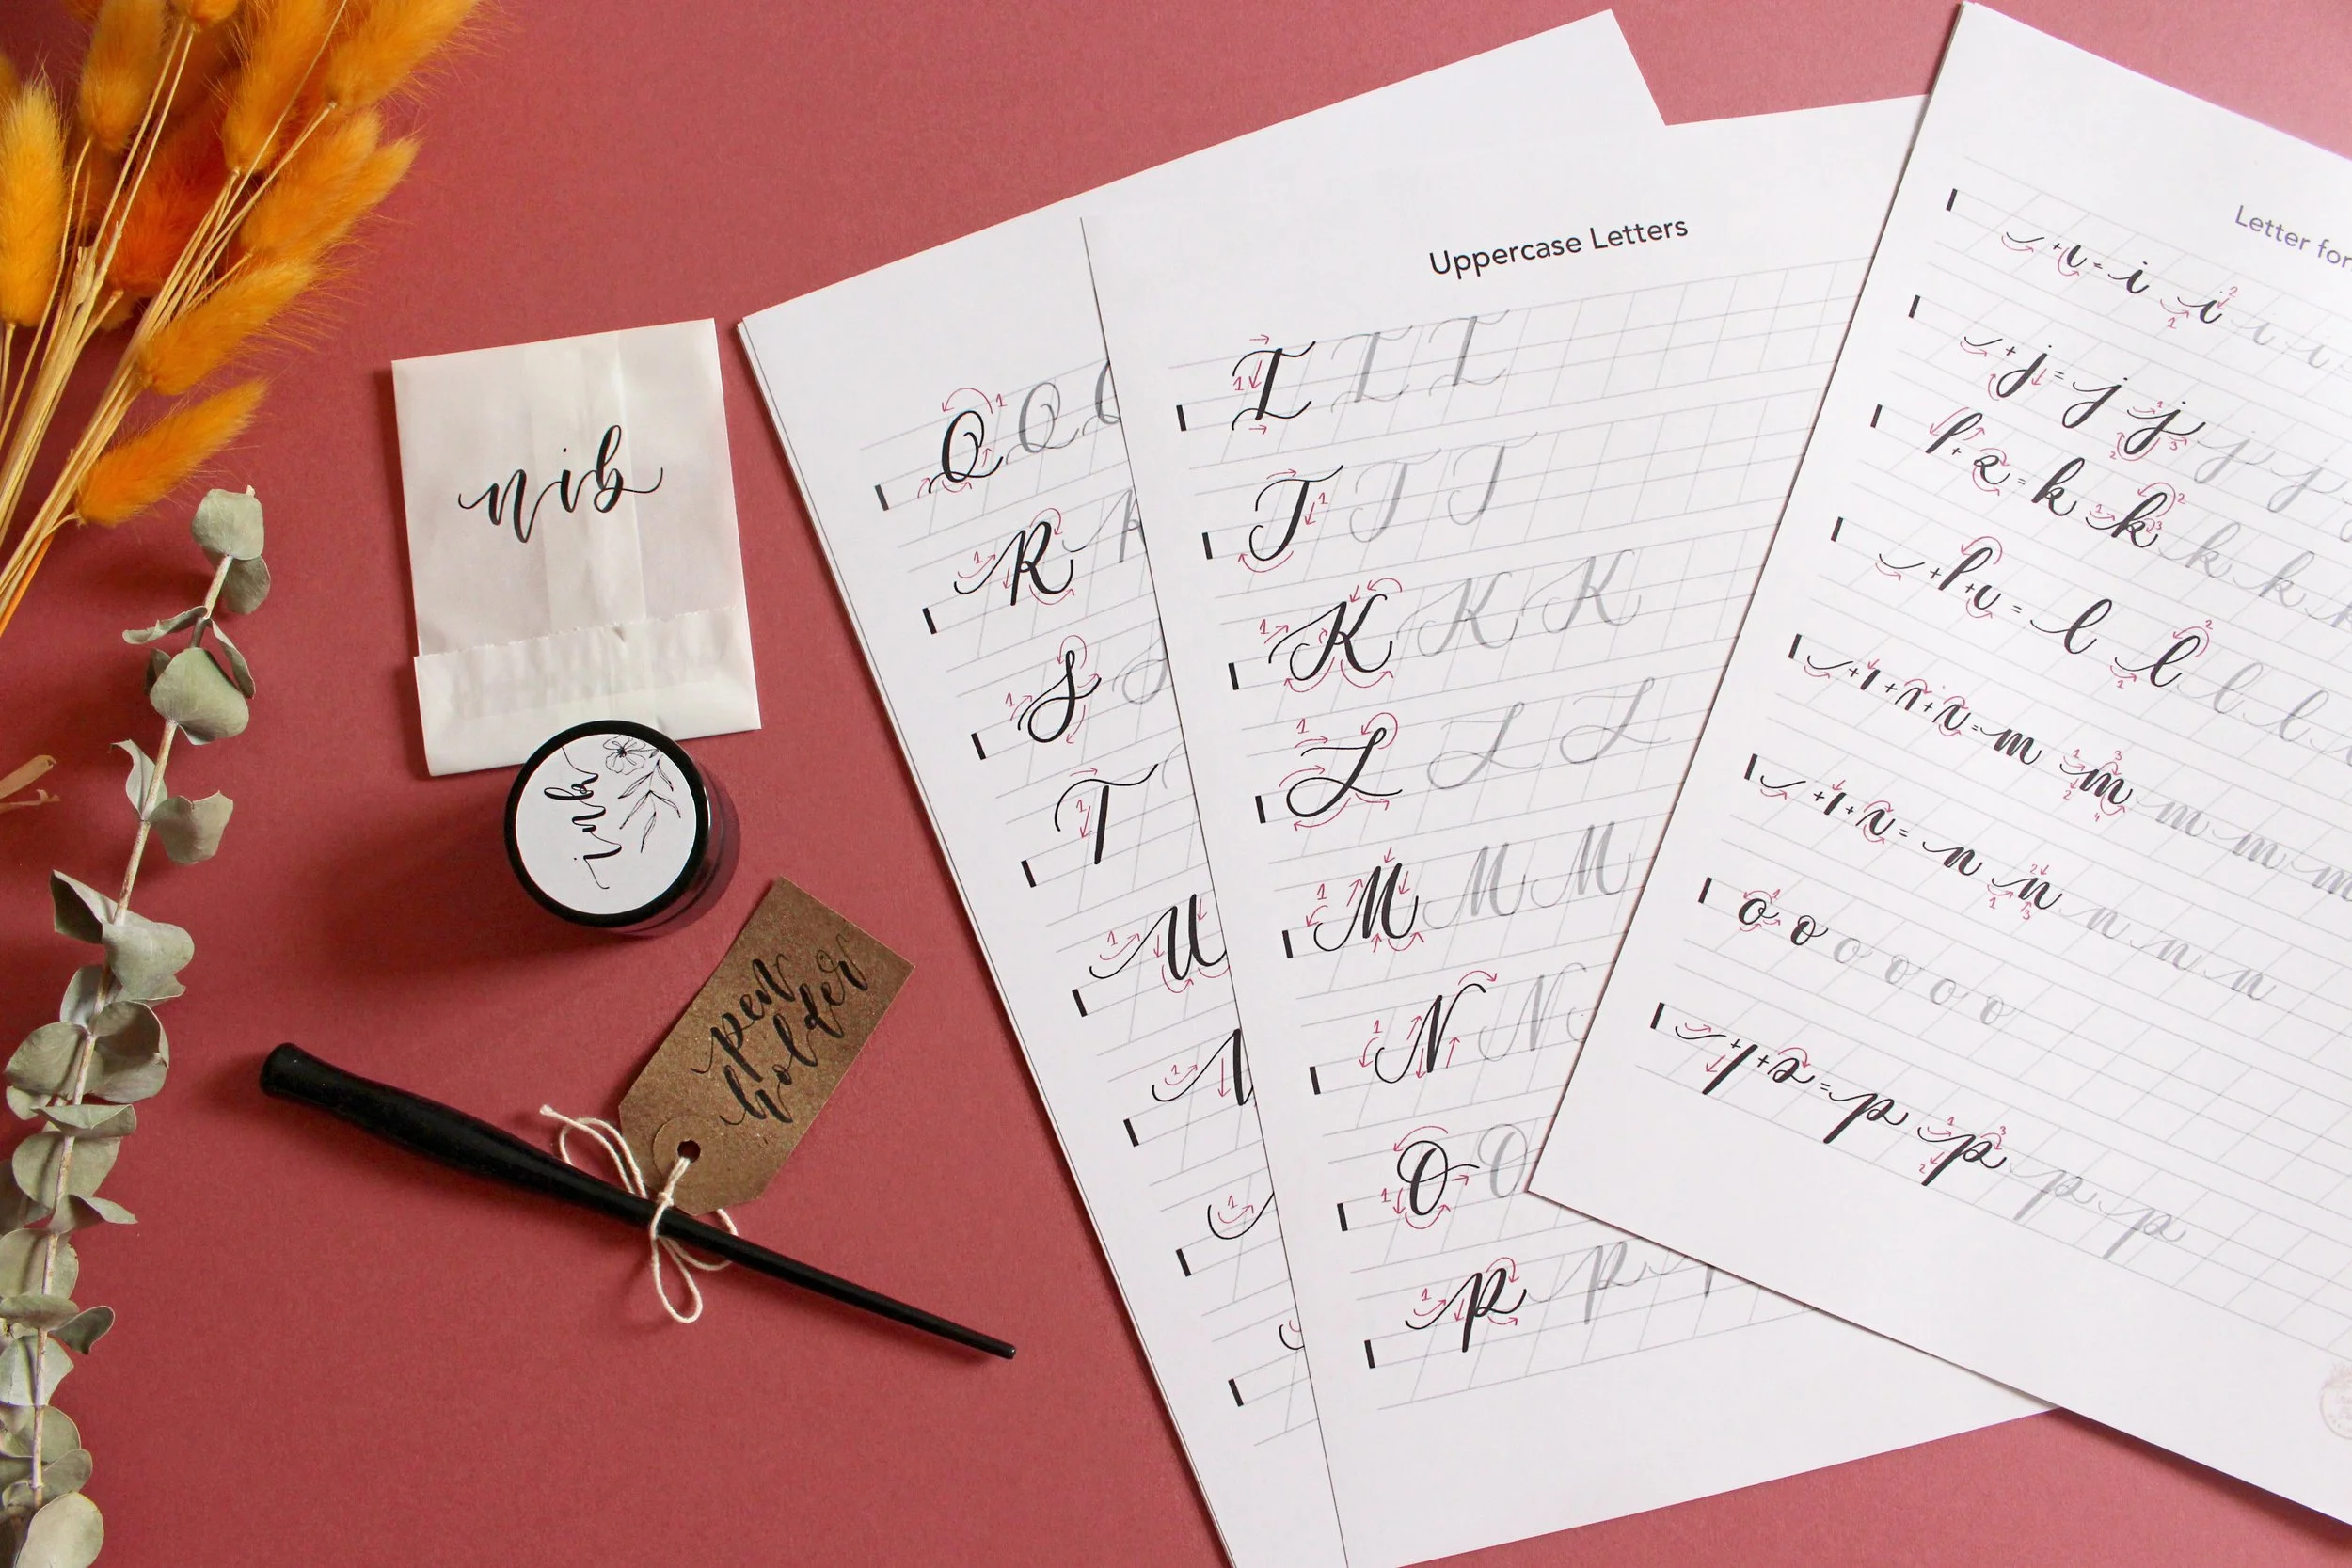 nib
ink
pen
holder
Q Q
R
S S
T
U
Uppercase Letters
I I I
J J J
K K K
L L L
M M M
N N N
O O
P P
Letter for
+ı = i i i i
+ j = j j j j
= k k k k
= l l l l
= m m m m m
= n n n n n
o o o o o o
= p p p p